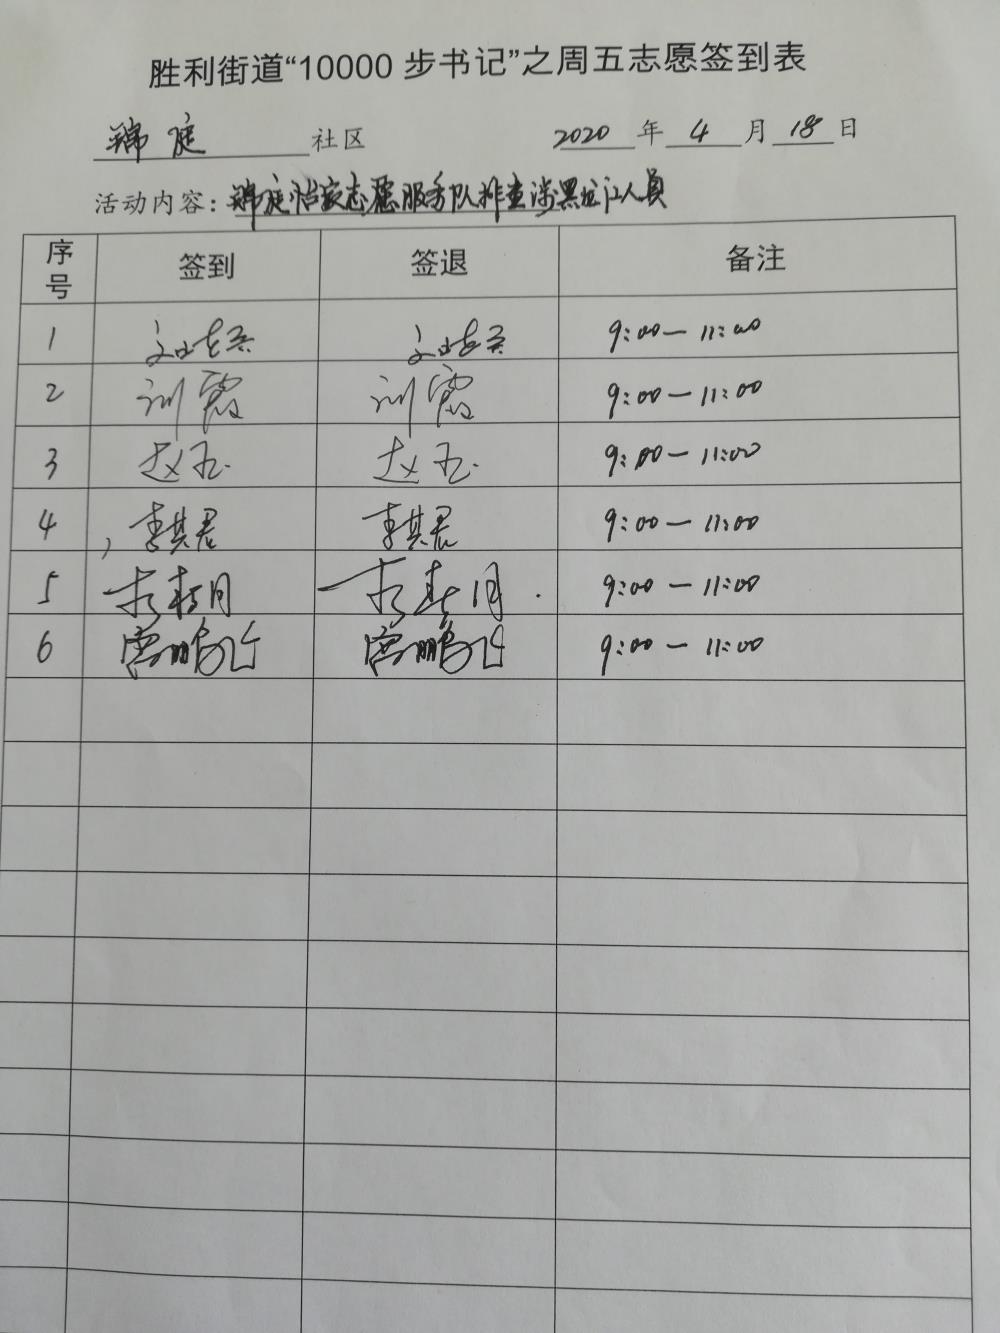 胜利街道“10000步书记”之周五志愿签到表
锦庭 社区 2020 年 4 月 18 日
活动内容：锦庭怡家志愿服务队排查涉黑龙江人员
序号 签到 签退 备注
1 9:00—11:00
2 9:00—11:00
3 赵玉 赵玉 9:00—11:00
4 李其君 李其君 9:00—11:00
5 9:00—11:00
6 宫鹏飞 宫鹏飞 9:00—11:00